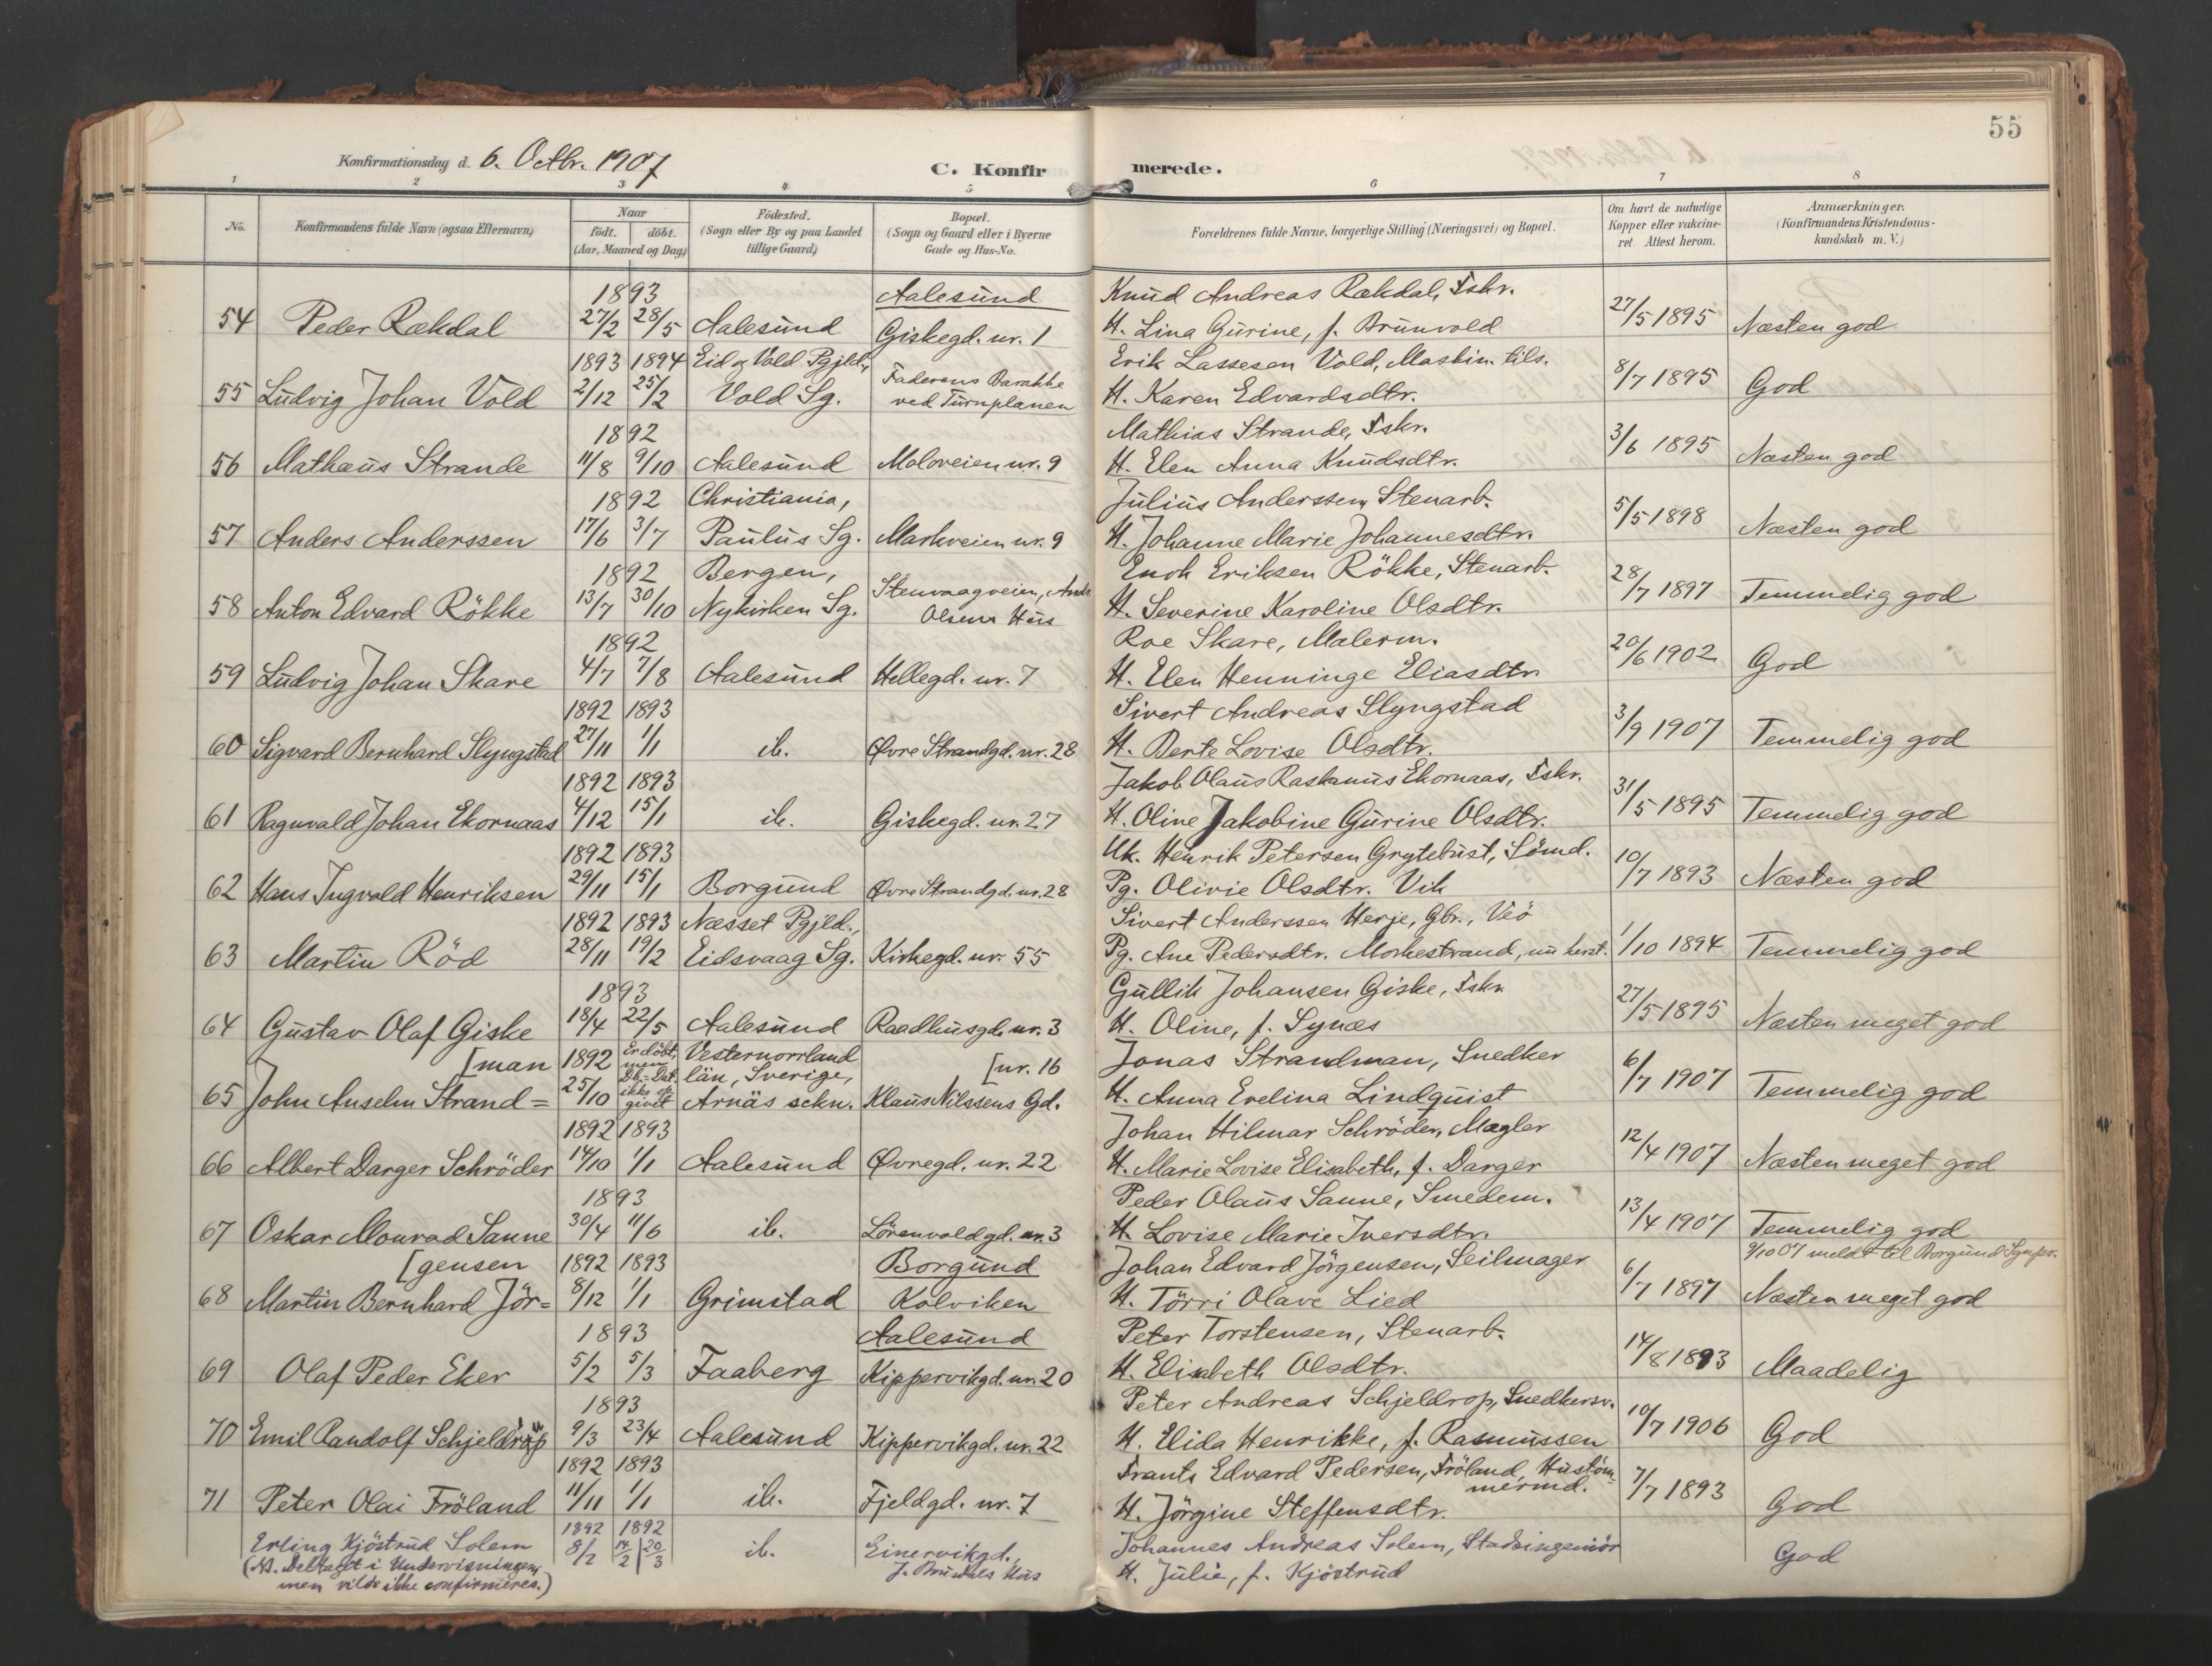 55
Konfirmationsdag d. 6. Octbr. 1907
C. Konfirmerede.
1 2 3 4 5 6 7 8
No. Konfirmandens fulde Navn (ogsaa Efternavn) Naar födt. döbt. (Aar, Maaned og Dag) Födested. (Sogn eller By og paa Landet tillige Gaard) Bopæl. (Sogn og Gaard eller i Byerne Gade og Hus-No. Forældrenes fulde Navne, borgerlige Stilling (Næringsvei) og Bopæl. Om havt de naturlige Kopper eller vakcineret. Attest herom. Anmærkninger. (Konfirmandens Kristendomskundskab m. V.)
1893 Aalesund Knud Andreas Rækdal, Fskr.
54 Peder Rækdal 27/2 28/5 Aalesund Giskegd. nr. 1 H. Lina Gurine, f. Brunvold 27/5 1895 Næsten god
1893 1894 Eid og Vold Pgjld., Faderens Barakke Erik Lassesen Vold, Maskin. tils.
55 Ludvig Johan Vold 2/12 25/2 Vold Sg. ved Turnplanen H. Karen Edvardsdtr. 8/7 1895 God
1892 Mathias Strande, Fskr.
56 Mathæus Strande 11/8 9/10 Aalesund Moloveien nr. 9 H. Elen Anna Knudsdtr. 3/6 1895 Næsten god
1892 Christiania, Julius Anderssen, Stenarb.
57 Anders Anderssen 17/6 3/7 Paulus Sg. Markveien nr. 9 H. Johanne Marie Johannesdtr. 5/5 1898 Næsten god
1892 Bergen, Stenvaagveien, Andr. Enok Eriksen Rökke, Stenarb.
58 Anton Edvard Rökke 13/7 30/10 Nykirken Sg. Olsens Hus H. Severine Karoline Olsdtr. 28/7 1897 Temmelig god
1892 Roe Skare, Malerm.
59 Ludvig Johan Skare 4/7 7/8 Aalesund Hellegd. nr. 7 H. Elen Henninge Eliasdtr. 20/6 1902 God
1892 1893 Sivert Andreas Slyngstad
60 Sigvard Bernhard Slyngstad 27/11 1/1 ib. Øvre Strandgd. nr. 28 H. Berte Lovise Olsdtr. 3/9 1907 Temmelig god
1892 1893 Jakob Olaus Rasmus Ekornaas, Fskr.
61 Ragnvald Johan Ekornaas 4/12 15/1 ib. Giskegd. nr. 27 H. Oline Jakobine Gurine Olsdtr. 31/5 1895 Temmelig god
1892 1893 Uk. Henrik Petersen Grytebust, Sömd.
62 Hans Ingvald Henriksen 29/11 15/1 Borgund Øvre Strandgd. nr. 28 Pg. Olivie Olsdtr. Vik 10/7 1893 Næsten god
1892 1893 Næsset Pgjld., Sivert Anderssen Herje, Gbr., Veö
63 Martin Röd 28/11 19/2 Eidsvaag Sg. Kirkegd. nr. 55 Pg. Ane Pedersdtr. Morkestrand, nu herst. 1/10 1894 Temmelig god
1893 Gullik Johansen Giske, Fskr.
64 Gustav Olaf Giske 18/4 22/5 Aalesund Raadhusgd. nr. 3 H. Oline, f. Synes 27/5 1895 Næsten meget god
[man 1892 Er döbt, men Db.-Dat. ikke opgivet Vesternorrland län, Sverige, [nr. 16 Jonas Strandman, Snedker
65 John Anselm Strand= 25/10 Arnäs sckn. Klaus Nilssens Gd. H. Anna Evelina Lindquist 6/7 1907 Temmelig god
1892 1893 Johan Hilmar Schröder, Mægler
66 Albert Darger Schröder 14/10 1/1 Aalesund Øvregd. nr. 22 H. Marie Lovise Elisabeth, f. Darger 12/4 1907 Næsten meget god
1893 Peder Olaus Sanne, Smedem.
67 Oskar Monrad Sanne 30/4 11/6 ib. Lörenvoldgd. nr. 3 H. Lovise Marie Iversdtr. 13/4 1907 Temmelig god
[gensen 1892 1893 Borgund Johan Edvard Jörgensen, Seilmager 9/10 07 meldt til Borgund Sgnpr.
68 Martin Bernhard Jör= 8/12 1/1 Grimstad Kolviken H. Törri Olave Lied 6/7 1897 Næsten meget god
1893 Aalesund Peter Torstensen, Stenarb.
69 Olaf Peder Eker 5/2 5/3 Faaberg Kippervikgd. nr. 20 H. Elisabeth Olsdtr. 14/8 1893 Maadelig
1893 Peter Andreas Schjeldrop, Snedkersv.
70 Emil Randolf Schjeldrup 9/3 23/4 Aalesund Kippervikgd. nr. 22 H. Elida Henrikke, f. Rasmussen 10/7 1906 God
1892 1893 Frants Edvard Pedersen, Fröland, Hustöm-
mermd.
71 Peter Olai Fröland 11/11 1/1 ib. Fjeldgd. nr. 7 H. Jörgine Steffensdtr. 7/7 1893 God
Erling Kjöstrud Solem 1892 8/2 1892 14/2 20/3 ib. Einervikgd., Johannes Andreas Solem, Stadsingeniör God
(NB. Deltaget i Undervisningen, J. Brusdals Hus H. Julie, f. Kjöstrud
men vilde ikke confirmeres.)